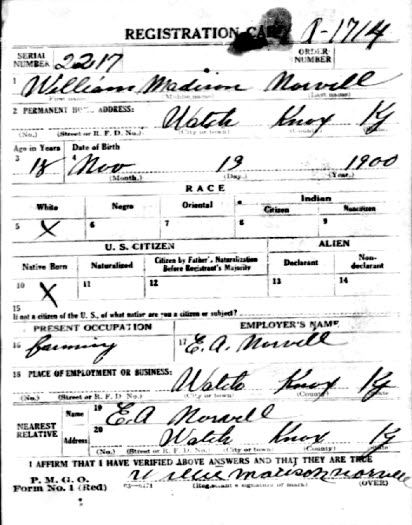 REGISTRATION CARD 8-1714
SERIAL NUMBER 2217 ORDER NUMBER
1 William Madison Norvell
(First name) (Middle name) (Last name)
2 PERMANENT HOME ADDRESS: Walch Knox Ky
(No.) (Street or R. F. D. No.) (City or town) (County) (State)
Age in Years Date of Birth
3 18 Nov 19 1900
(Month.) (Day.) (Year.)
RACE
White Negro Oriental Indian
Citizen Noncitizen
5 X 6 7 8 9
U. S. CITIZEN ALIEN
Native Born Naturalized Citizen by Father's Naturalization Before Registrant's Majority Declarant Non-declarant
10 X 11 12 13 14
15
If not a citizen of the U. S., of what nation are you a citizen or subject?
PRESENT OCCUPATION EMPLOYER'S NAME
16 farming 17 E. A. Norvell
18 PLACE OF EMPLOYMENT OR BUSINESS: Knox Ky
(No.) (Street or R. F. D. No.) (City or town) (County) (State)
NEAREST RELATIVE Name 19 E. A Norvell
Address 20 Walch Knox Ky
(No.) (Street or R. F. D. No.) (City or town) (County) (State)
I AFFIRM THAT I HAVE VERIFIED ABOVE ANSWERS AND THAT THEY ARE TRUE
P. M. G. O.
Form No. 1 (Red) Willie Madison Norvell
(Registrant's signature or mark) (OVER)